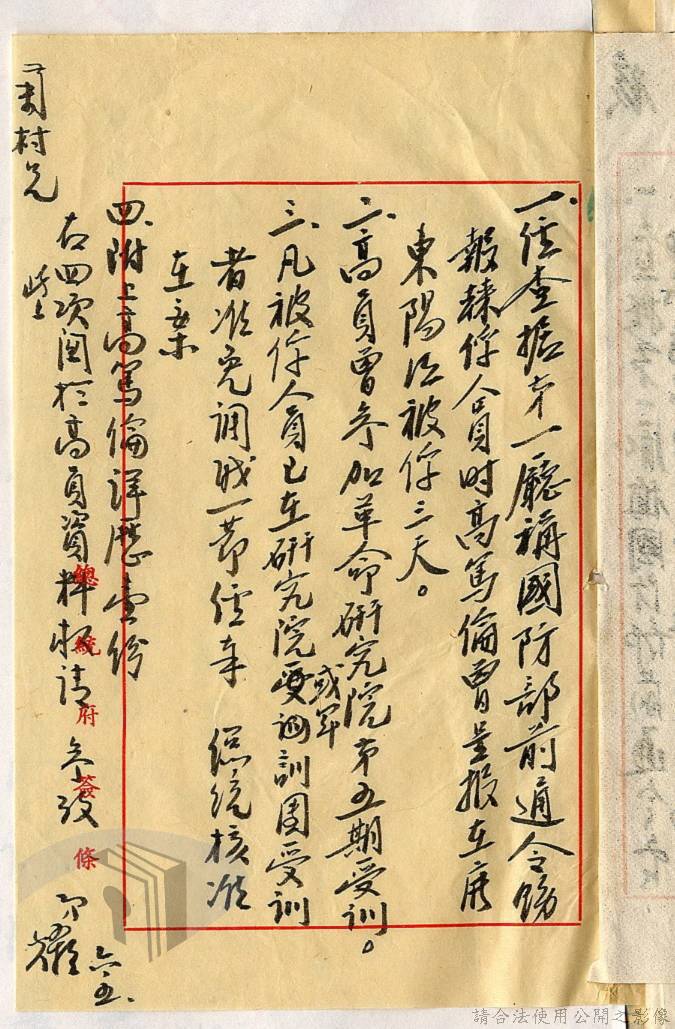 一、經查據第一廳稱國防部前通令飭
報錄俘人員時高篤倫曾呈報在廣
東陽江被俘三天。
二、高員曾參加革命研究院第五期受訓。
三、凡被俘人員已在研究院或軍訓團受訓
者准免調職一節經奉 總統核准
在案
四、附上高篤倫詳歷壹份
右四項關於高員資料報請 參考
村兄
六.五.
總統府簽條
請合法使用公開之影像